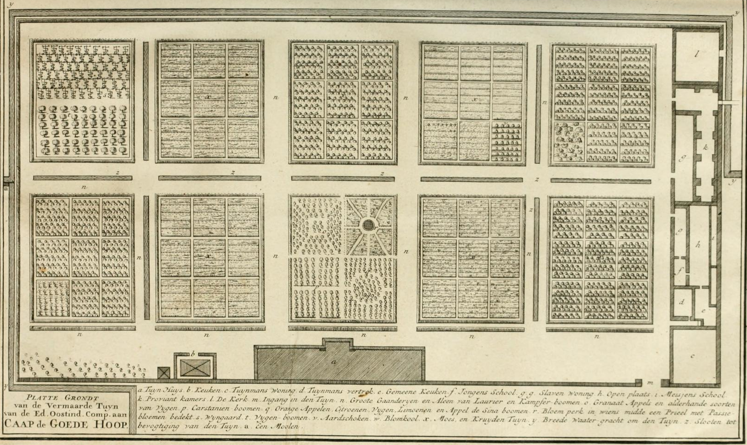 PLATTE GRONDT
van de Vermaarde Tuyn
van de Ed. Oostind. Comp. aan
CAAP de GOEDE HOOP.
a Tuyn Huys b Keuken c Tuynmans Woning d Tuynmans vertrek e Gemeene Keuken f Jongens School g g Slaven Woning h Open plaats i Meysens School
k Provoant kamers l De Kerk m Ingang in den Tuyn n Groote Gaanderyen en Aleen van Laurier en Kampfer boomen o Granaat Appels en allerhande soorten
van Vygen p Carstanien boomen q Oranje Appelen Citroenen Vygen Limoenen en Appel de Sina boomen r Bloem perk in wiens midde een Prieel met Passie
bloemen bedekt s Wyngaard t Vygen boomen v Aardschoken w Blomkool x Moes en Kruyden Tuyn y Breede Waater gracht om den Tuyn z Slooten tot
bevogtegung van den Tuyn a Coorn Moolen